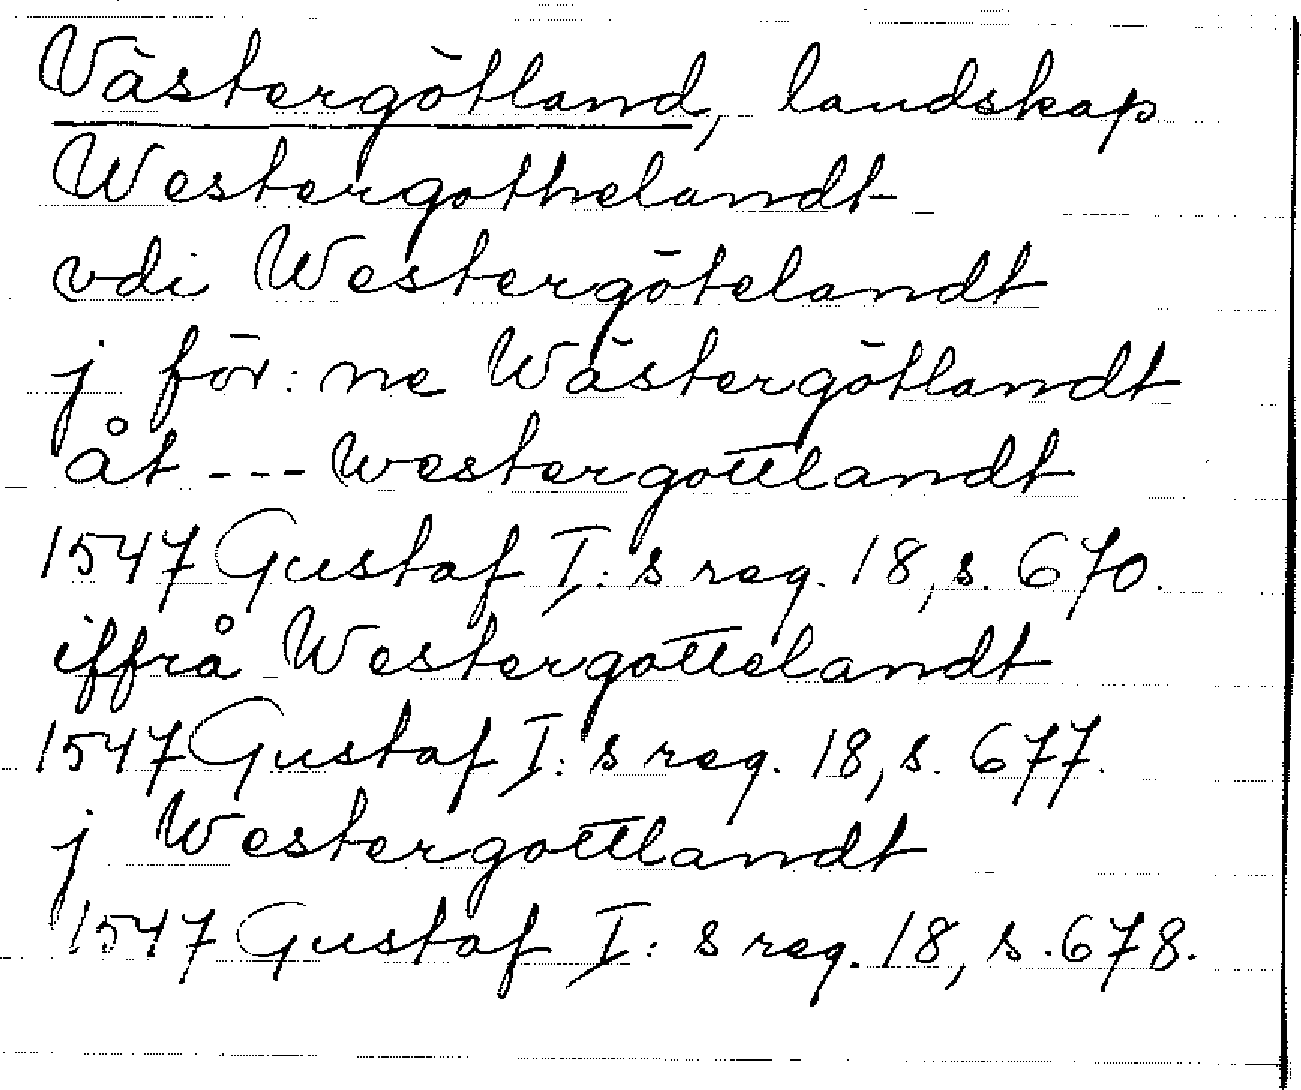 Västergötland, landskap
Westergothelandt
vdi Westergötelandt
j för: ne Wästergötlandt
åt --- westergottlandt
1547 Gustaf I: s reg. 18, s. 670.
iffrå Westergottelandt
1547 Gustaf I: s reg. 18, s. 677.
j Westergottlandt
1547 Gustaf I: s reg. 18, s. 678.